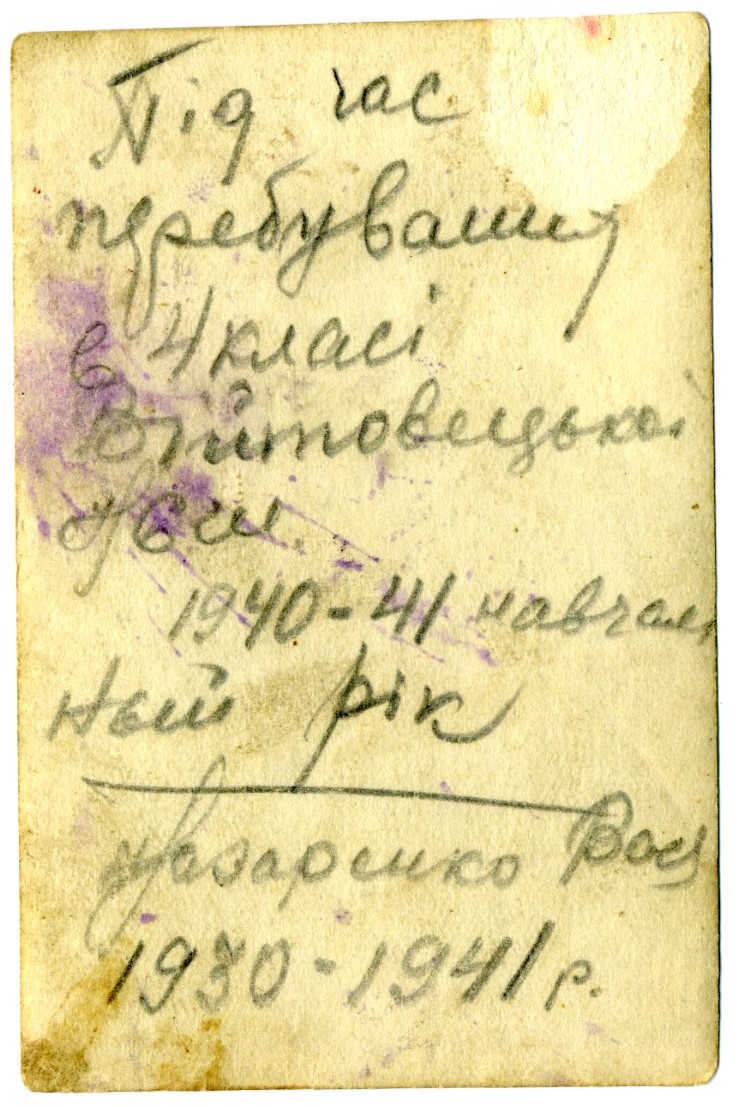 Під час
перебування
в 4 класі
Війтовецької
НСШ.
1940-41 навчаль
ний рік
Назаренко Вася
1930-1941 р.